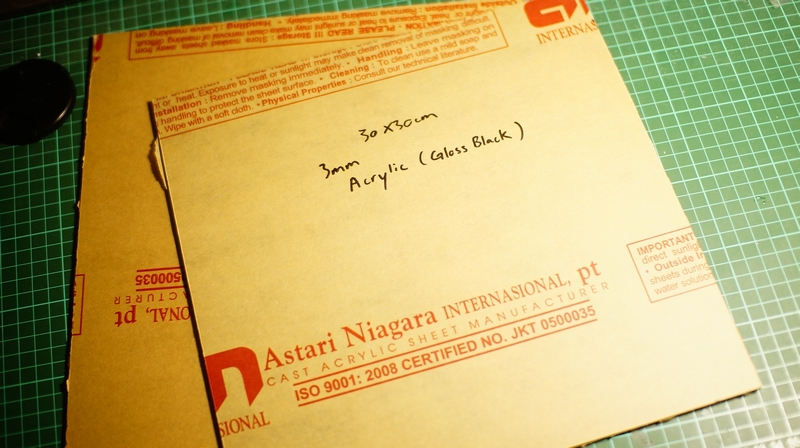 PLEASE READ !!! • Storage : Store
INTERNAS
or heat. Exposure to heat or sunlight may make clean removal of masking difficult.
Installation : Remove masking immediately • Handling : Leave masking on
handling to protect the sheet surface. • Cleaning : To clean use a mild soap and
Wipe with a soft cloth. •Physical Properties : Consult our technical literature.
30 x 30cm
3mm
Acrylic (Gloss Black)
IMPORTANT
direct sunlig
• Outside In
sheets during
water solu
500035
ACTURER
ONAL, pt
Astari Niagara INTERNASIONAL, pt
CAST ACRYLIC SHEET MANUFACTURER
ISO 9001: 2008 CERTIFIED NO. JKT 0500035
SIONAL